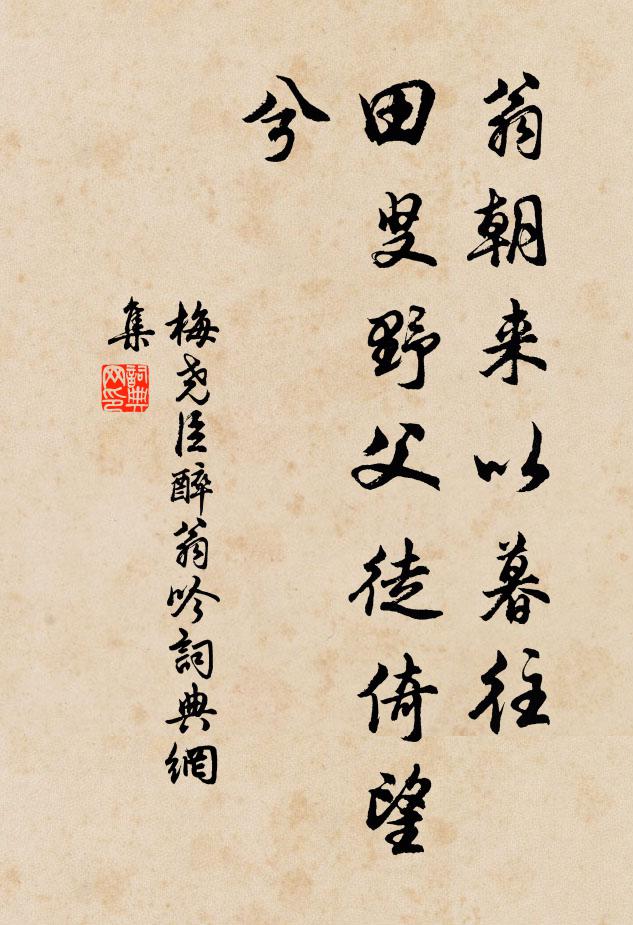 翁朝来以暮往
田叟野父徒倚望
兮
梅尧臣醉翁吟詞典網
集
詞典网印